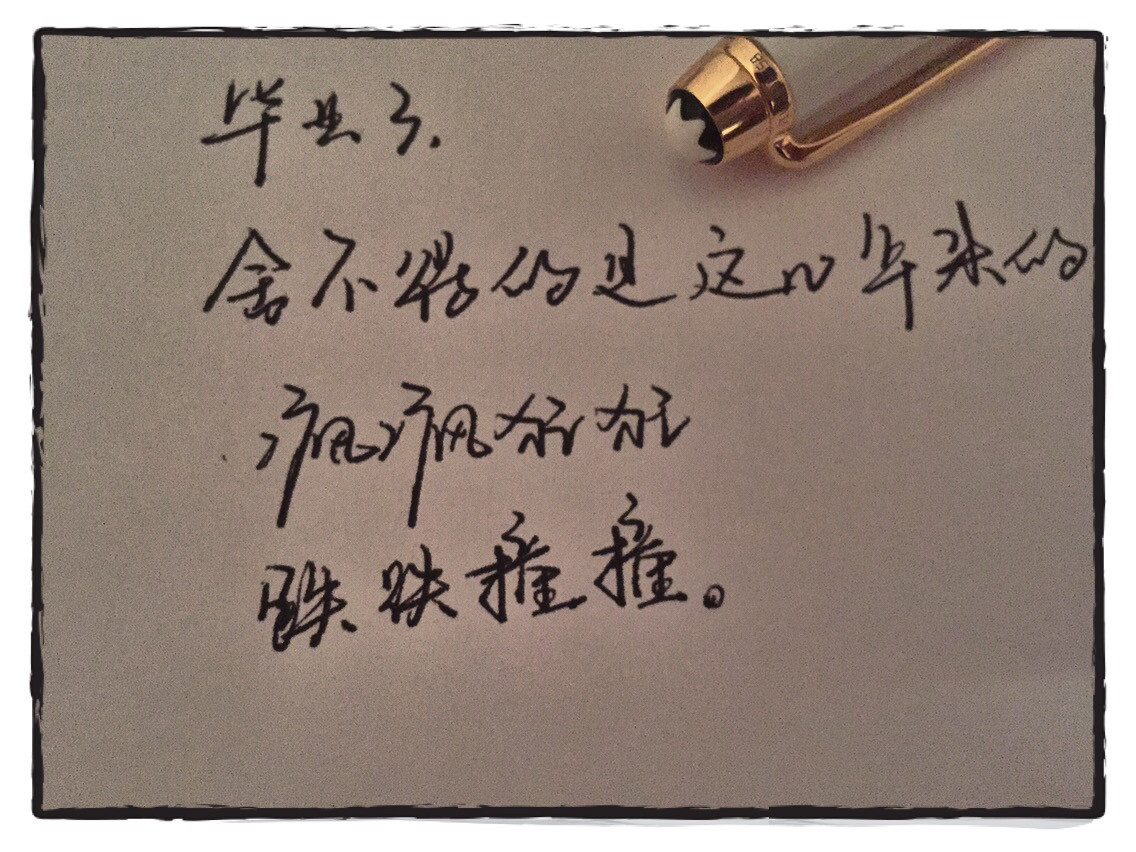 毕业了.
舍不得的是这几年来的
疯疯狂狂
跌跌撞撞。